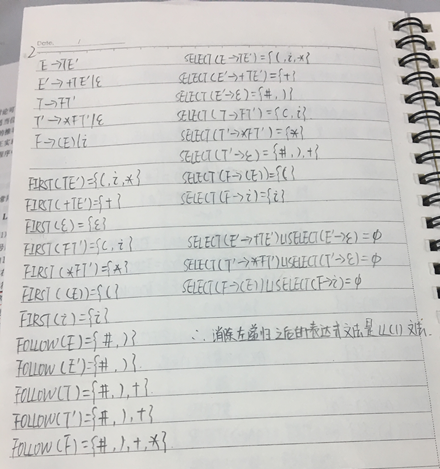 2
E→TE'
E'→+TE'|ε
T→FT'
T'→*FT'|ε
F→(E)|i
SELECT(E→TE')={(,i,*}
SELECT(E'→+TE')={+}
SELECT(E'→ε)={#,)}
SELECT(T→FT')={(,i}
SELECT(T'→*FT')={*}
SELECT(T'→ε)={#,),+}
SELECT(F→(E))={(}
SELECT(F→i)={i}
FIRST(TE')={(,i,*}
FIRST(+TE')={+}
FIRST(ε)={ε}
FIRST(FT')={(,i}
FIRST(*FT')={*}
FIRST((E))={(}
FIRST(i)={i}
FOLLOW(E)={#,)}
FOLLOW(E')={#,)}
FOLLOW(T)={#,),+}
FOLLOW(T')={#,),+}
FOLLOW(F)={#,),+,*}
SELECT(E'→+TE')∪SELECT(E'→ε)=φ
SELECT(T'→*FT')∪SELECT(T'→ε)=φ
SELECT(F→(E))∪SELECT(F→i)=φ
∴消除左递归之后的表达式文法是LL(1)文法.